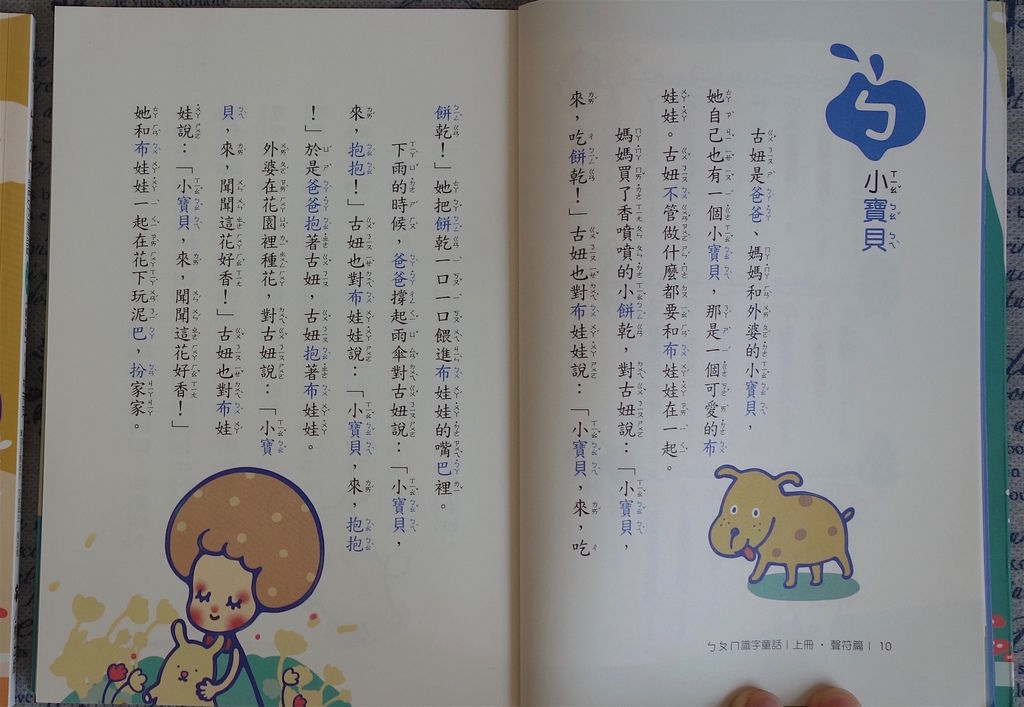 ㄅ
小寶貝
古妞是爸爸、媽媽和外婆的小寶貝，
她自己也有一個小寶貝，那是一個可愛的布
娃娃。古妞不管做什麼都要和布娃娃在一起。
媽媽買了香噴噴的小餅乾，對古妞說：「小寶貝，
來，吃餅乾！」古妞也對布娃娃說：「小寶貝，來，吃
餅乾！」她把餅乾一口一口餵進布娃娃的嘴巴裡。
下雨的時候，爸爸撐起雨傘對古妞說：「小寶貝，
來，抱抱！」古妞也對布娃娃說：「小寶貝，來，抱抱
！」於是爸爸抱著古妞，古妞抱著布娃娃。
外婆在花園裡種花，對古妞說：「小寶
貝，來，聞聞這花好香！」古妞也對布娃
娃說：「小寶貝，來，聞聞這花好香！」
她和布娃娃一起在花下玩泥巴，扮家家。
ㄅㄆㄇ識字童話｜上冊·聲符篇｜10